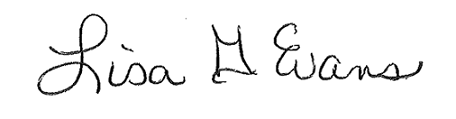 Lisa G Evans